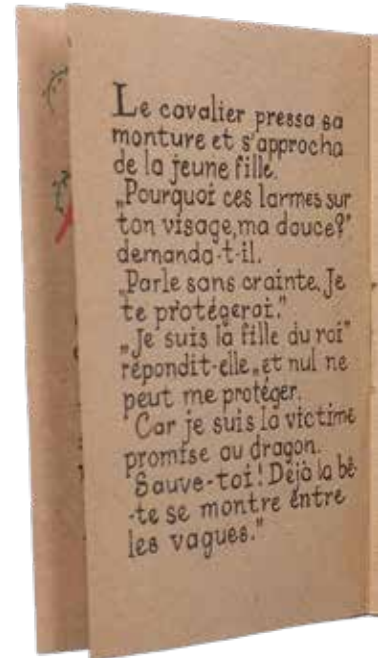 Le cavalier pressa sa
monture et s'approcha
de la jeune fille.
„Pourquoi ces larmes sur
ton visage, ma douce?"
demanda-t-il.
„Parle sans crainte. Je
te protégerai."
„Je suis la fille du roi"
répondit-elle „et nul ne
peut me protéger.
Car je suis la victime
promise au dragon.
Sauve-toi! Déjà la bê-
-te se montre entre
les vagues."